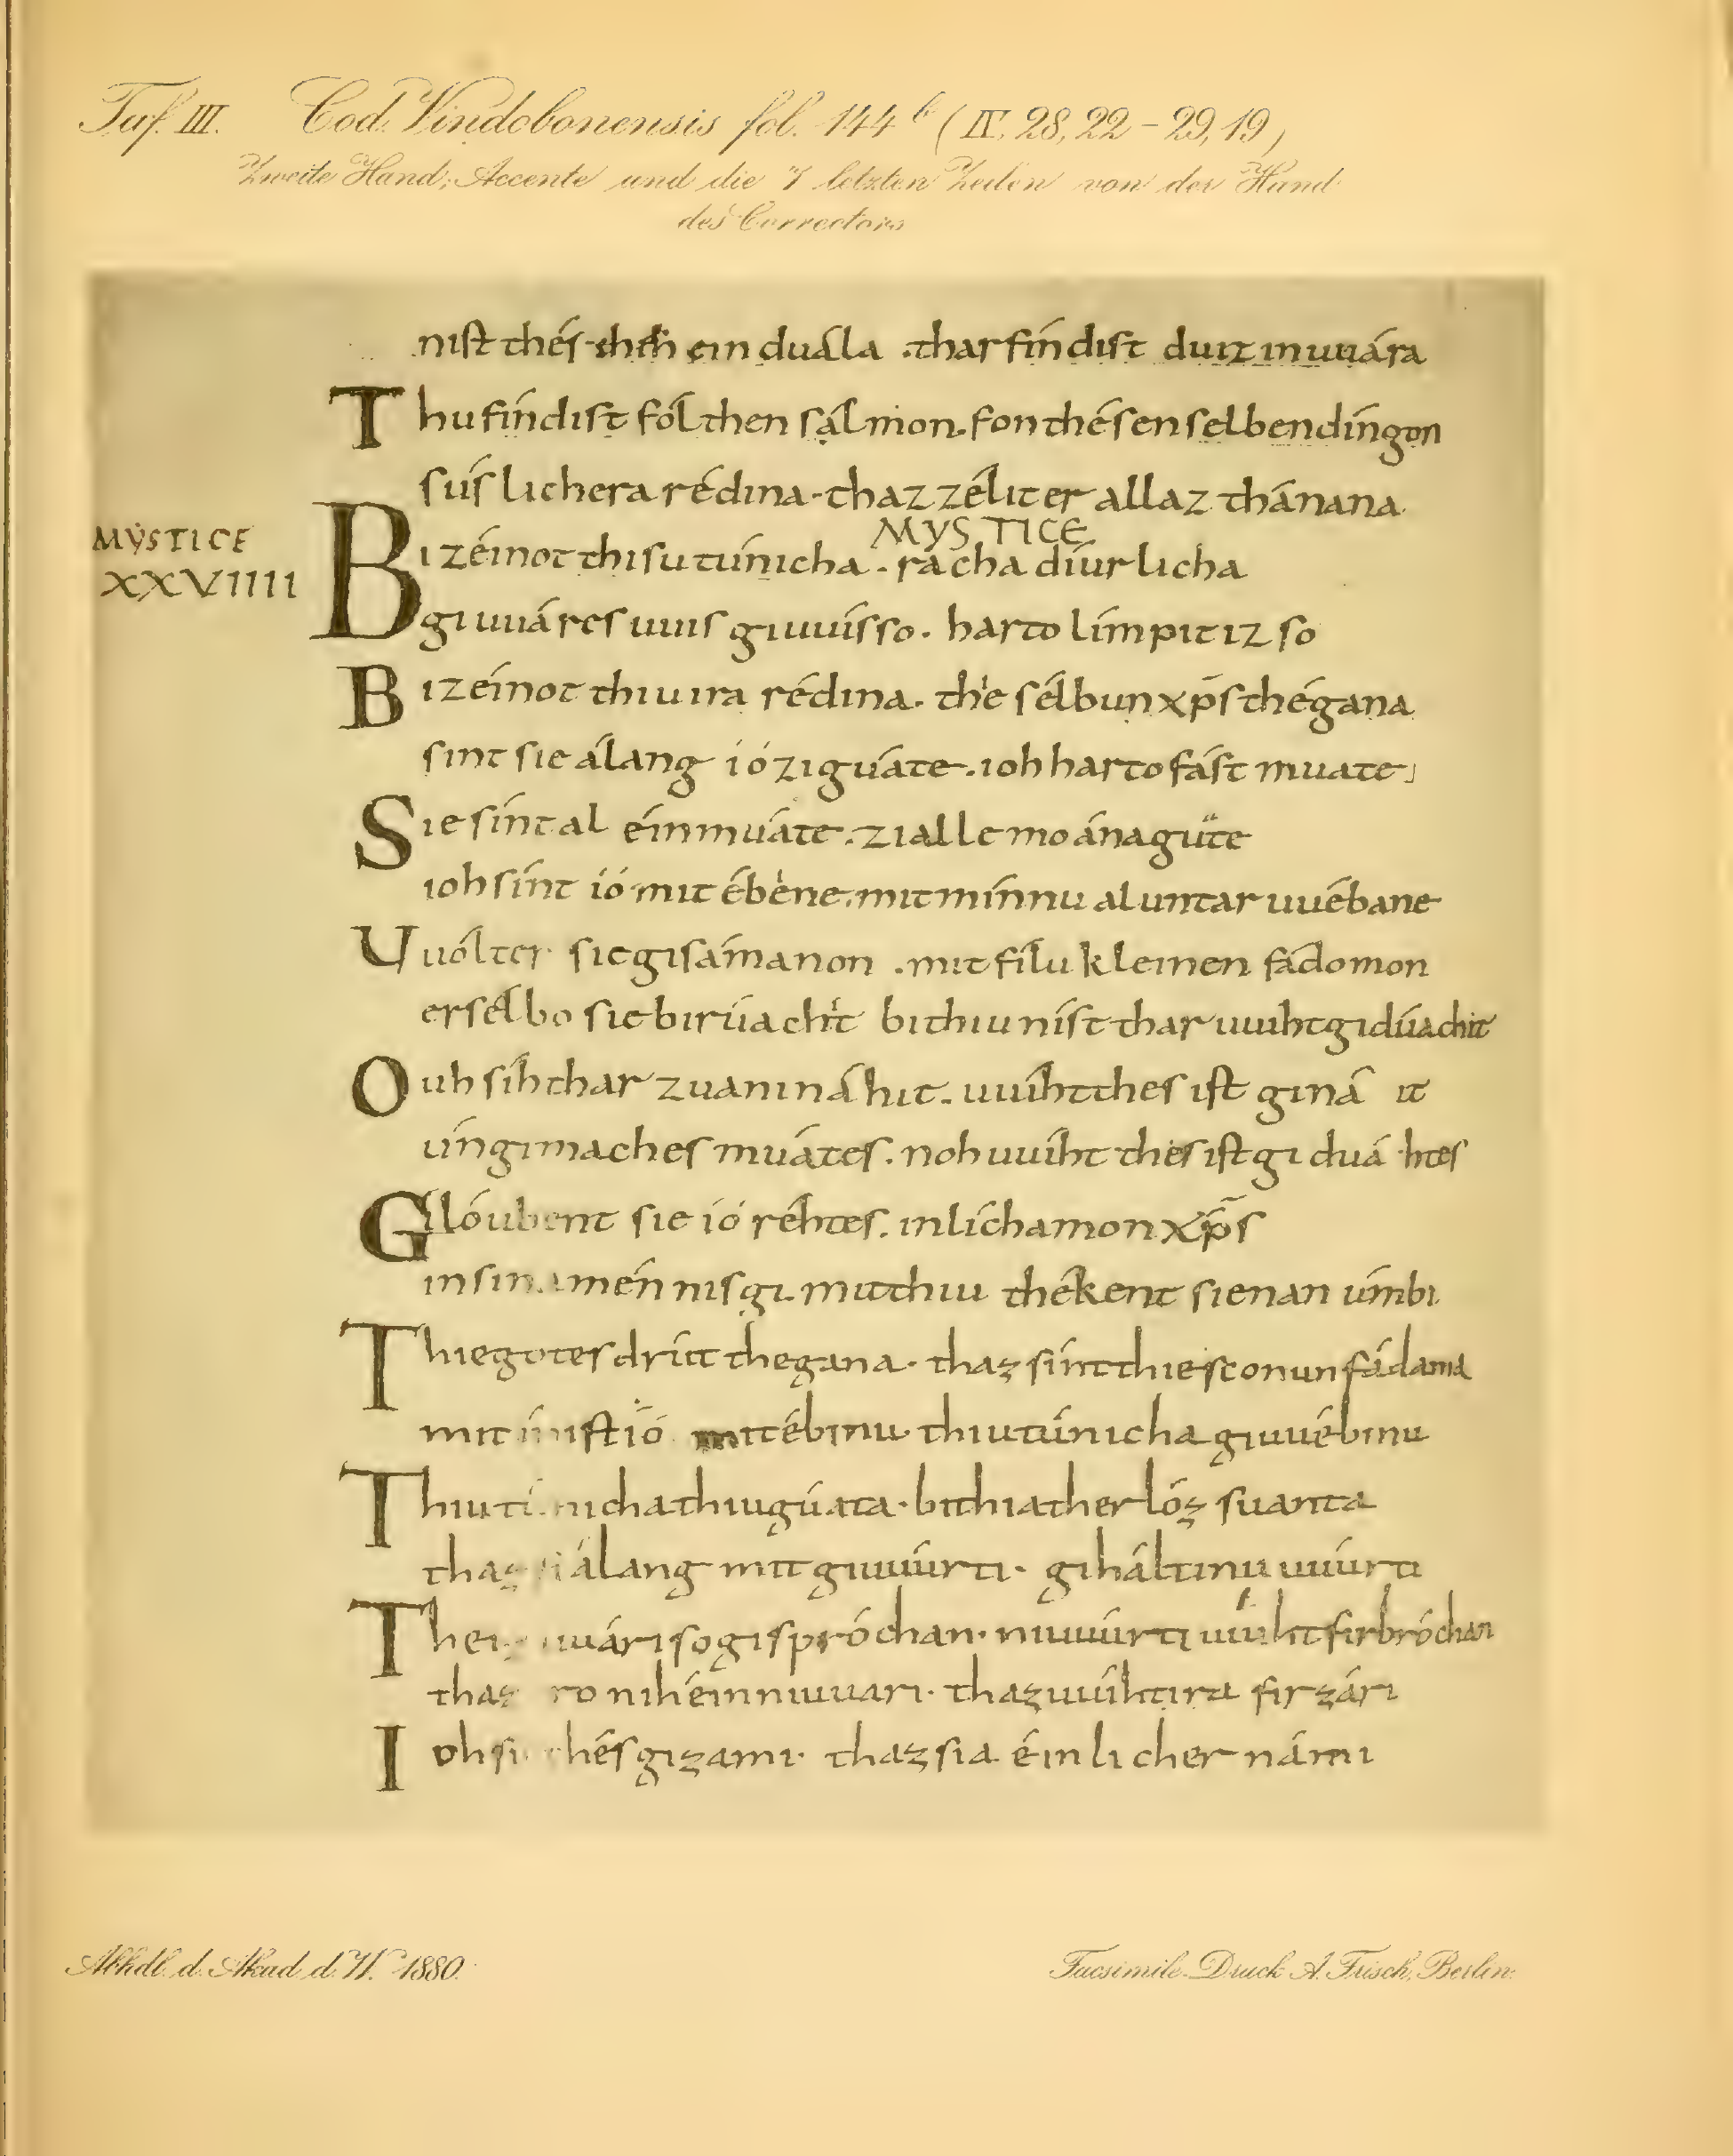 Taf. III. Cod. Vindobonensis fol. 144 b (IV, 28, 22 – 29, 19)
Zweite Hand; Accente und die 7 letzten Zeilen von der Hand
des Correctors
nist thés ein duála . thar findist duiz in uuára
Thu findist fól then sálmon. fon thésen selben díngon
sús lichera rédina. thaz zélit er allaz thánana
MYSTICE
MYSTICE
XXVIIII
Bizéinot thisu túnicha . racha díurlicha
giuuáres uuis giuuísso. harto límpit iz so
Bizéinot thiu ira rédina. the sélbun xp̄s thégana
sint sie álang ió zi gúate. ioh harto fást muate
Sie sínt al éinmúate . zi allemo ánagúte
ioh sínt ió mit ébene. mit mínnu al untar uuébane
Uuólt er sie gisámanon . mit fílu kleinen fádomon
er sélbo sie birúachit bithiu níst thar uuiht gidúachit
Ouh síh thar zua ni náhit. uuíht thes ist giná it
úngimaches muátes. noh uuiht thes ist gi duá htes
Gilóubent sie ió réhtes. in líchamon xp̄s
in sin mén nisgi. mit thiu thékent sie nan úmbi
Thie gotes drútthegana. thaz sínt thie sconun fádama
mit ist ió mit ébinu thiu túnicha giuuébinu
Thiu túnicha thiu gúata. bi thia ther lóz suanta
thaz si álang mit giuuúrti. giháltinu uuúrti
Thei uuári so gispróchan. ni uuúrti uuiht firbróchan
thaz ro nihéin ni uuari. thaz uuíht ira firzári
Ioh si thés gizami. thaz sia éinlicher námi
Abhdl. d. Akad. d. W. 1880.
Facsimile-Druck A. Frisch, Berlin.